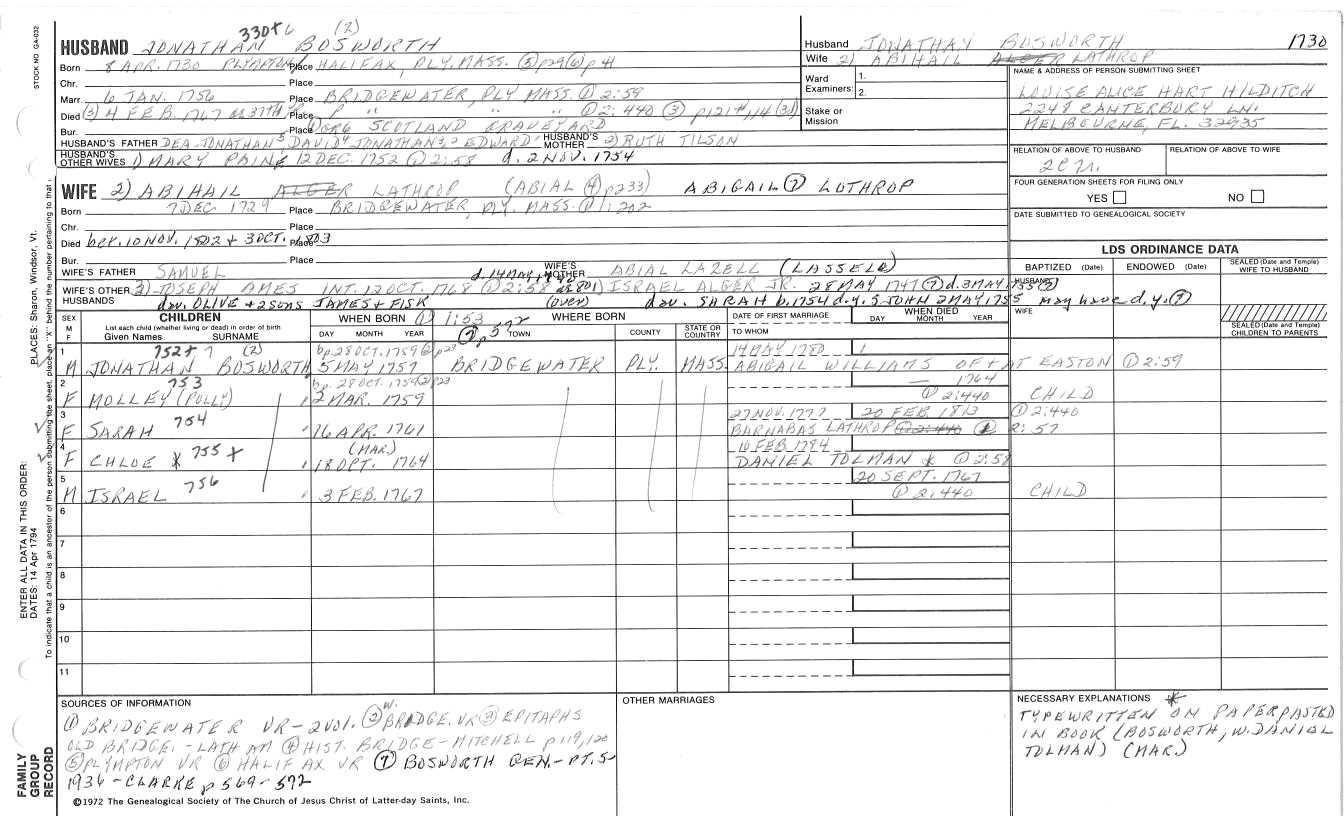 330+6 (2)
HUSBAND JONATHAN BOSWORTH
Born 8 APR. 1730 PLYMPTON/ Place HALIFAX, PLY. MASS. ⑤ p29 ⑥ p 41
Chr. Place
Marr. 6 JAN. 1756 Place BRIDGEWATER, PLY MASS ① 2:59
Died (3) 4 FEB. 1767 Place " " " ① 2:440 ③ p121
Bur. Place SCOTLAND GRAVEYARD
HUSBAND'S FATHER DEA. JONATHAN⁵ DAVID⁴ JONATHAN³,² EDWARD¹ HUSBAND'S MOTHER 2) RUTH TILSON
HUSBAND'S OTHER WIVES 1) MARY PAINE 12 DEC. 1752 ① 2:58 d. 2 NOV. 1754
Husband JONATHAN BOSWORTH 1730
Wife 2) ABIHAIL ALGER LATHROP
Ward Examiners: 1.
2.
Stake or Mission
NAME & ADDRESS OF PERSON SUBMITTING SHEET
LOUISE ALICE HART HILDITCH
2248 CANTERBURY LN.
MELBOURNE, FL. 32935
RELATION OF ABOVE TO HUSBAND RELATION OF ABOVE TO WIFE
FOUR GENERATION SHEETS FOR FILING ONLY
YES NO
DATE SUBMITTED TO GENEALOGICAL SOCIETY
WIFE 2) ABIHAIL ALGER LATHROP (ABIAL ④ p233) ABIGAIL ⑦ LOTHROP
Born 7 DEC 1729 Place BRIDGEWATER, PLY. MASS. ① 1:202
Chr. Place
Died bet. 10 NOV. 1802 + 3 OCT. 1803 Place
Bur. Place
WIFE'S FATHER SAMUEL WIFE'S MOTHER ABIAL LAZELL (LASSELL)
WIFE'S OTHER HUSBANDS 3) JOSEPH AMES INT. 12 OCT. 1768 ① 2:58 1) ISRAEL ALGER JR. 28 MAY 1747 ⑦ d. 3 MAY 1755 ⑦
dau. OLIVE + 2 sons JAMES + FISK (over) dau. SARAH b. 1754 d.y. S JOHN 2 MAY 1755 may have d.y. ⑦
LDS ORDINANCE DATA
BAPTIZED (Date) ENDOWED (Date) SEALED (Date and Temple) WIFE TO HUSBAND
HUSBAND
WIFE
SEALED (Date and Temple) CHILDREN TO PARENTS
SEX M F CHILDREN List each child (whether living or dead) in order of birth Given Names SURNAME
WHEN BORN ① 1:53 DAY MONTH YEAR
WHERE BORN ⑦ p 572 TOWN COUNTY STATE OR COUNTRY
DATE OF FIRST MARRIAGE TO WHOM
WHEN DIED DAY MONTH YEAR
1 752+ 7 (2) bp. 28 OCT. 1759 ② p23 14 MAY 1780
M JONATHAN BOSWORTH 5 MAY 1757 BRIDGEWATER PLY. MASS. ABIGAIL WILLIAMS OF + AT EASTON ① 2:59
2 753 bp. 28 OCT. 1759 ② p23 — 1764
F MOLLEY (POLLY) " 2 MAR. 1759 ① 2:440 CHILD
3 27 NOV. 1777 20 FEB. 1813 ① 2:440
F SARAH 754 " 16 APR. 1761 BARNABAS LATHROP ① 2:440 ① 2:57
4 (MAR.) 10 FEB 1784
F CHLOE * 755 + " 18 OPT. 1764 DANIEL TOLMAN * ① 2:58
5 20 SEPT. 1767
M ISRAEL 756 " 3 FEB. 1767 ① 2:440 CHILD
6
7
8
9
10
11
SOURCES OF INFORMATION
① BRIDGEWATER VR - 2 VOl. ② W. BRIDGE. VR ③ EPITAPHS
OLD BRIDGE. - LATHAM ④ HIST. BRIDGE - MITCHELL p 119, 120
⑤ PLYMPTON VR ⑥ HALIFAX VR ⑦ BOSWORTH GEN. - PT. 5 -
1936 - CLARKE p 569 - 572
OTHER MARRIAGES
NECESSARY EXPLANATIONS *
TYPEWRITTEN ON PAPER PASTED
IN BOOK (BOSWORTH, W. DANIEL
TOLMAN) (MAR.)
©1972 The Genealogical Society of The Church of Jesus Christ of Latter-day Saints, Inc.
STOCK NO. GA-032
PLACES: Sharon, Windsor, Vt.
ENTER ALL DATA IN THIS ORDER:
DATES: 14 Apr 1794
To indicate that a child is an ancestor of the person submitting the sheet, place an "X" behind the number pertaining to that
FAMILY GROUP RECORD